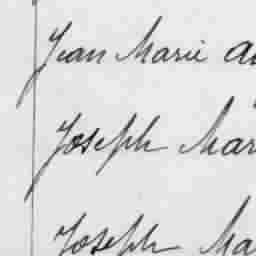 Jean Marie
Joseph Mar
Joseph Ma